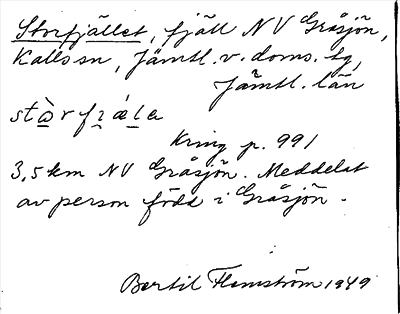 Storfjället, fjäll NV Gråsjön,
Kalls sn, Jämtl. v. doms. tg,
Jämtl. län
stɑ̀rfjæla
Kring p. 991
3,5 km NV Gråsjön. Meddelat
av person född i Gråsjön.
Bertil Flemström 1949